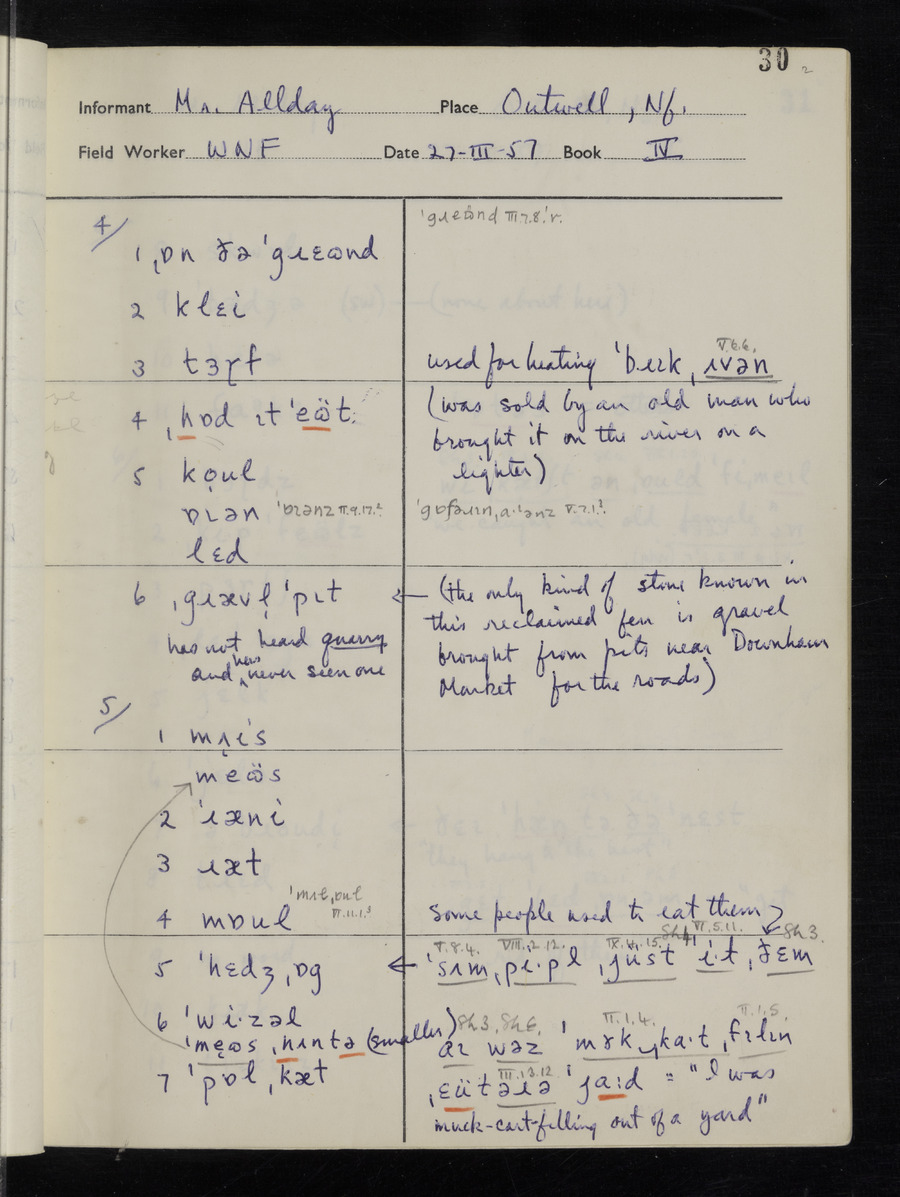 30 2
Informant Mr. Allday Place Outwell, Nf.
Field Worker WNF Date 27-III-57 Book IV
4/
ˈgɹɛωnd III.7.8.
1 ˌɒn ðə ˈgɹɛωnd
2 klɛi
3 tɜɽf
used for heating ˈbɹɪk ˌɪvən V.6.6.
4 ˌhɒd ɪt ˈeω̈t
(was sold by an old man who
brought it on the river on a
lighter)
5 kọul
ɒɪən ˈɒɪənz II.9.17.²
V.7.1.²
lɛd
6 ˌgɹævl̩ ˈpɪt ←
(the only kind of stone known in
this reclaimed fen is gravel
brought from pits near Downham
Market for the roads)
has not heard quarry
and has never seen one
5/
1 mɪ̨i's
meω̈s
2 ˈɹænɪ
3 ɹæt
4 mɒul
VI.11.1.³
some people used to eat them
5 ˈhɛdʒ ˌɒg ←
V.8.4. VIII.2.12. IX.4.15. VI.5.11. Sh 3.
ˈsɪm ˌpi·pl ˌjüst i·t ˌðɛm
6 ˈwi·zəl
ˈmeωs ˌhɪntə (smaller)
7 ˈpɒl ˌkæt
Sh3, Sh6. II.1.4. II.1.5.
aɪ wəz ˈmɤk ˌka·t ˌfɪlɪn
III.13.12.
ˌɛütəɹə ˈja:d = "I was
muck-cart-filling out of a yard"